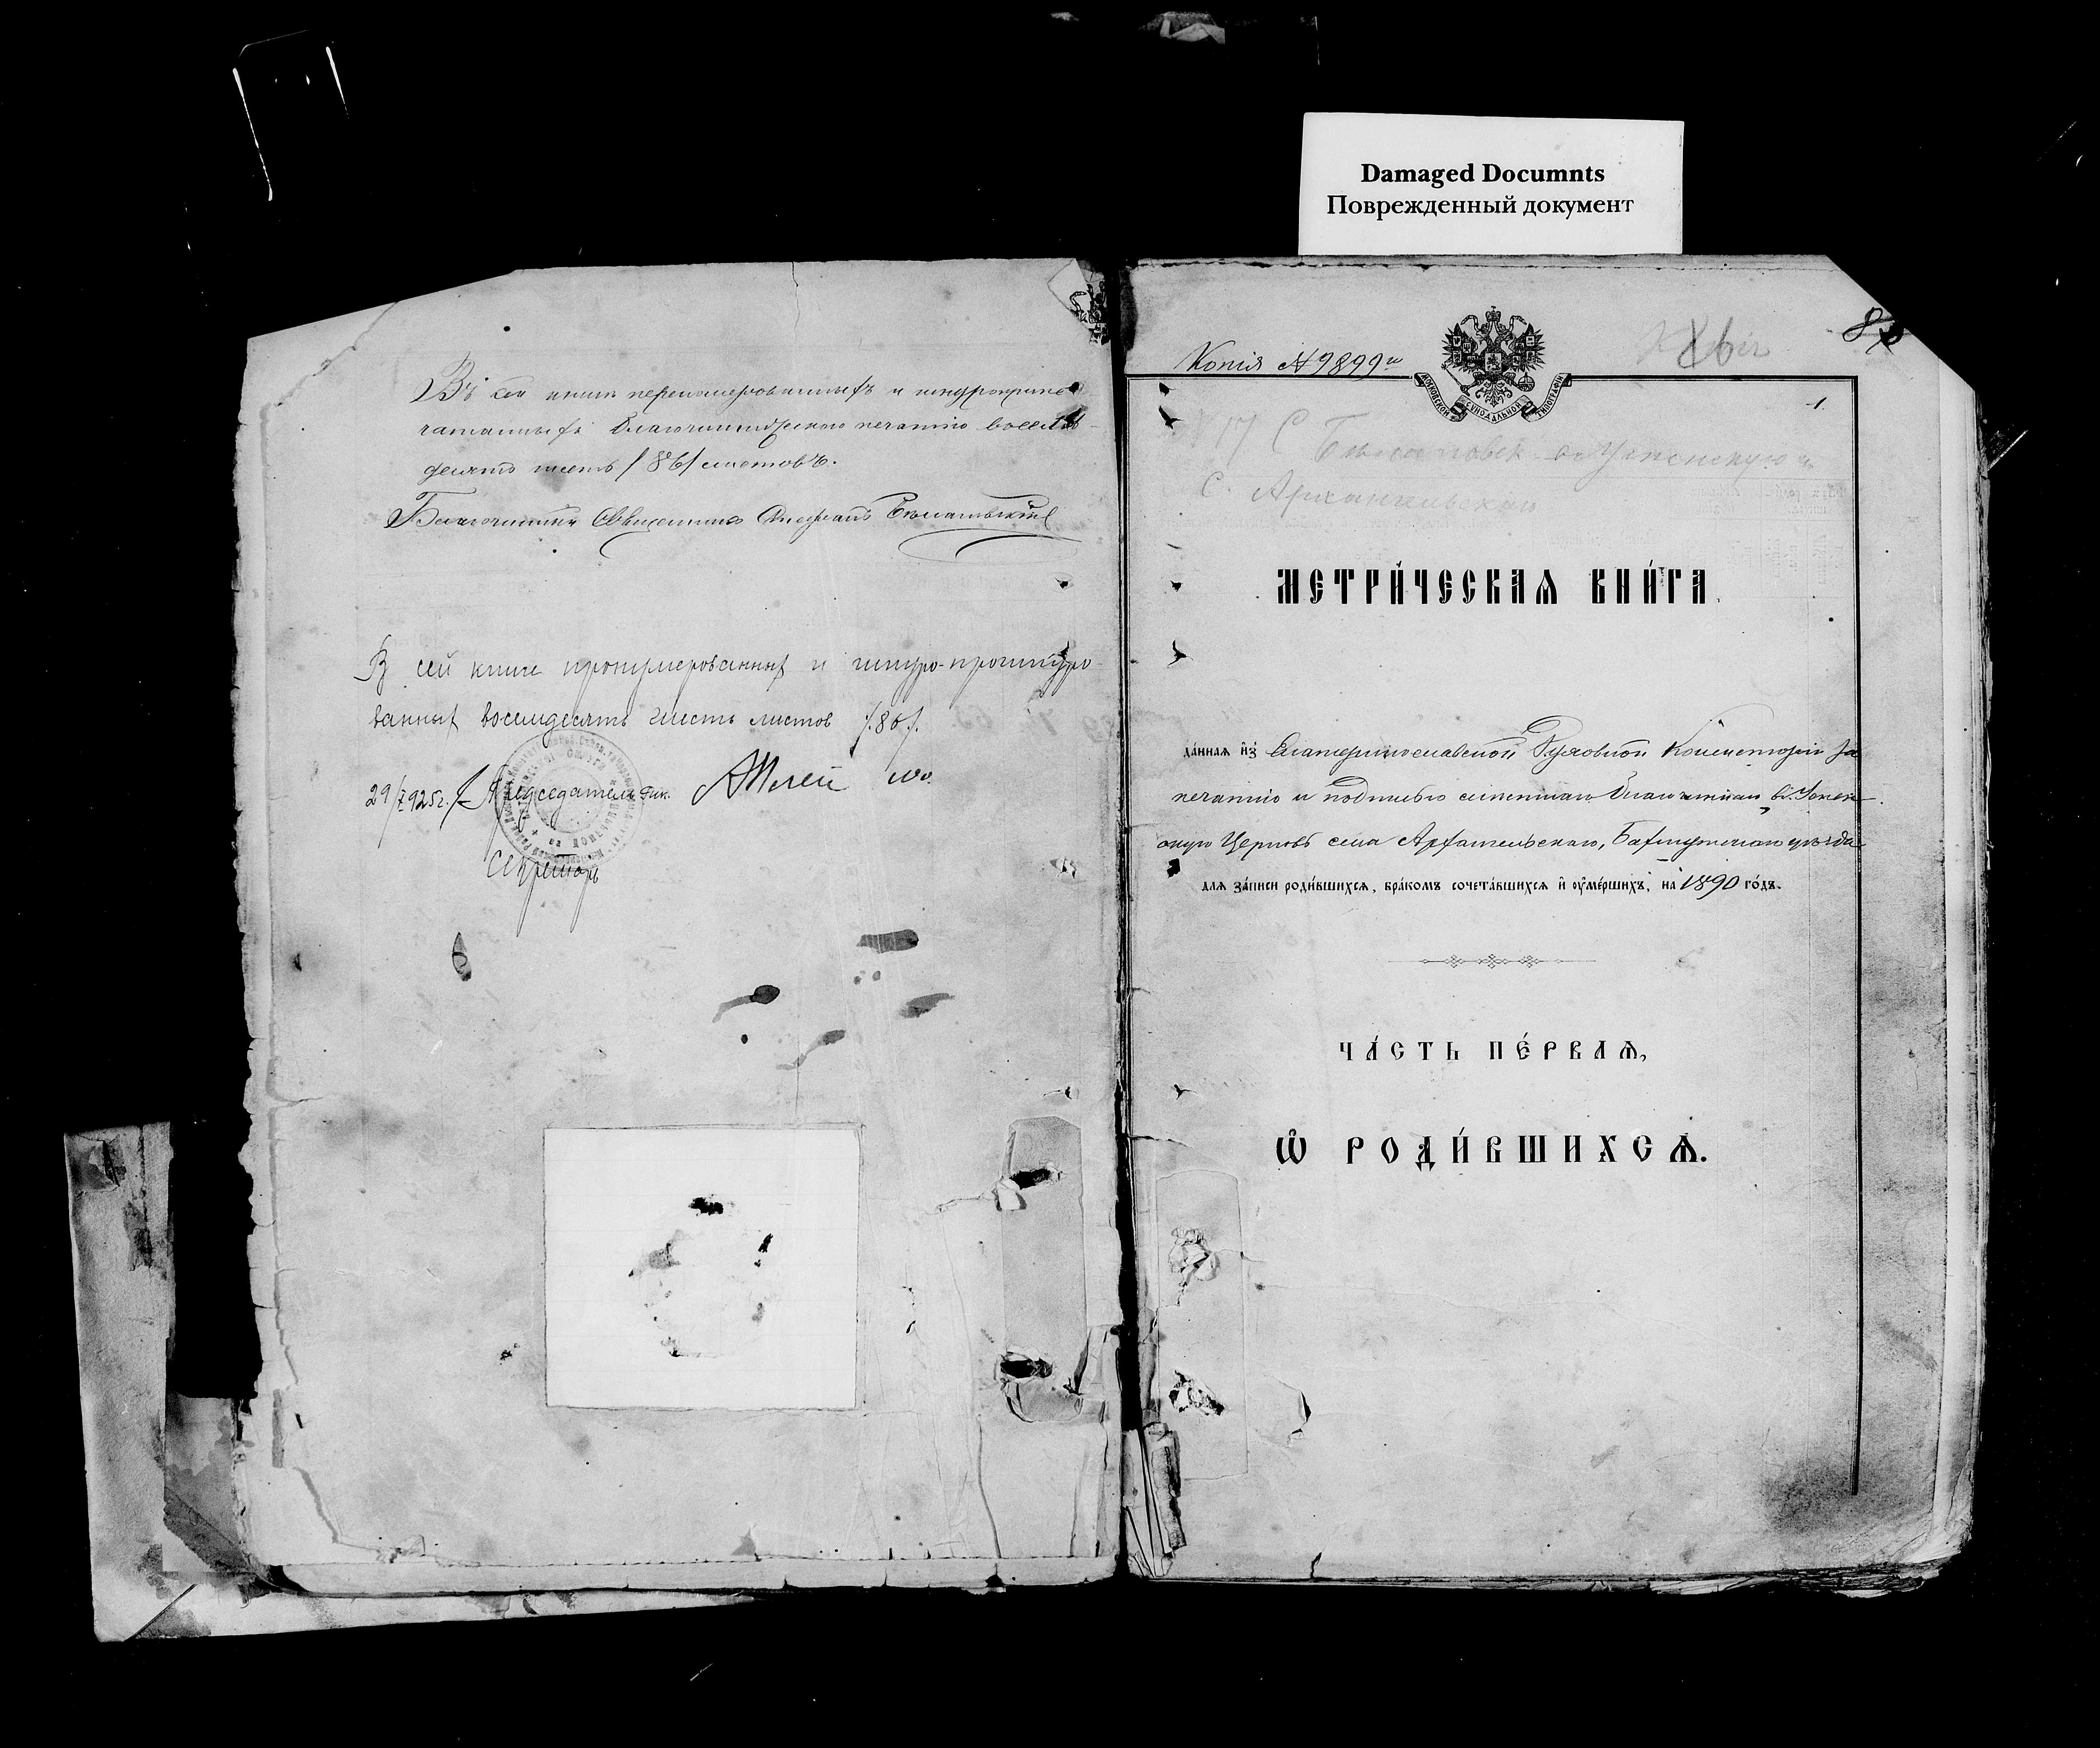 Damaged Documnts
Поврежденный документ
Въ сей книгѣ перенумерованныхъ и шнуроприпе-
чатанныхъ Благочинническою печатію восемь-
десятъ шесть /86/ листовъ.
Благочинный Священникъ
В сей книге пронумерованных и шнуро-прошнуро
ванных восемдесять шесть листов /.86/.
29/7 925г. Председатель Рик.
Секретарь
Копія №9899й
8
МОСКОВСКОЙ СѴНОДАЛЬНОЙ ТИПОГРАФІИ
1.
17 С
С. Архангельскаго
МЕТРИ́ЧЕСКАѦ КНИ́ГА
да́ннаѧ и҆з̾ Екатеринославской Духовной Консисторіи за
печатію и подписью мѣстнаго Благочиннаго въ Успен-
скую Церковь села Архангельскаго, Бахмутскаго уѣзда
длѧ за́писи роди́вшихсѧ, бра́комъ сочета́вшихсѧ и҆ оу҆ме́ршихъ, на 1890 го́дъ.
ЧА́СТЬ ПЕ́РВАѦ,
Ѽ РОДИ́ВШИХСѦ.